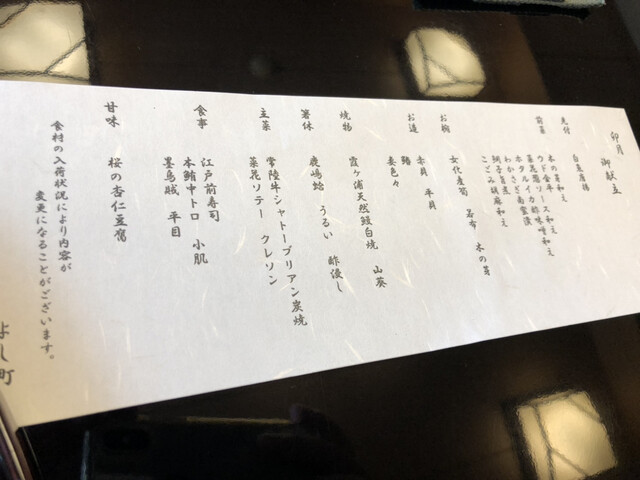 卯月 御献立
先付
前菜
木の芽和え
ウド金平
ホタルイカ酢味噌和え
わかさぎ南蛮漬
こごみ胡麻和え
お椀
女化産筍 若布 木の芽
お造
赤貝 平貝
妻色々
焼物
霞ヶ浦天然鰻白焼 山葵
箸休
鹿嶋蛤 うるい 酢浸し
主菜
常陸牛シャトーブリアン炭焼
菜花ソテー クレソン
食事
江戸前寿司
本鮪中トロ 小肌
墨烏賊 平目
甘味
桜の杏仁豆腐
食材の入荷状況により内容が
変更になることがございます。
よし町